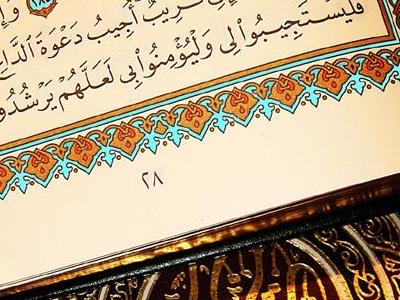 قَرِيبٌ أُجِيبُ دَعْوَةَ ٱلدَّاعِ
فَلْيَسْتَجِيبُوا۟ لِى وَلْيُؤْمِنُوا۟ بِى لَعَلَّهُمْ يَرْشُدُونَ
٢٨